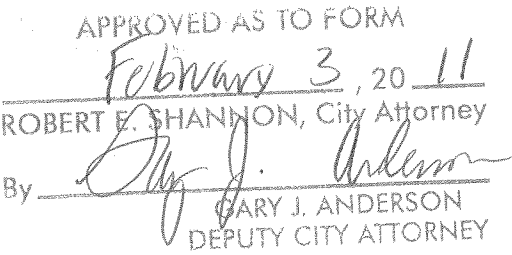 APPROVED AS TO FORM
February 3, 20 11
ROBERT E. SHANNON, City Attorney
By Gary J. Anderson
GARY J. ANDERSON
DEPUTY CITY ATTORNEY